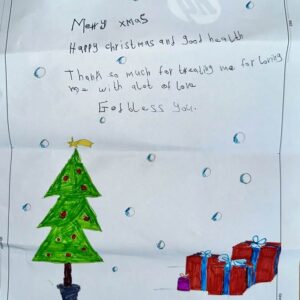 Merry xmas
Happy christmas and good health
Thank so much for treating me for loving
me with alot of love
God bless you.